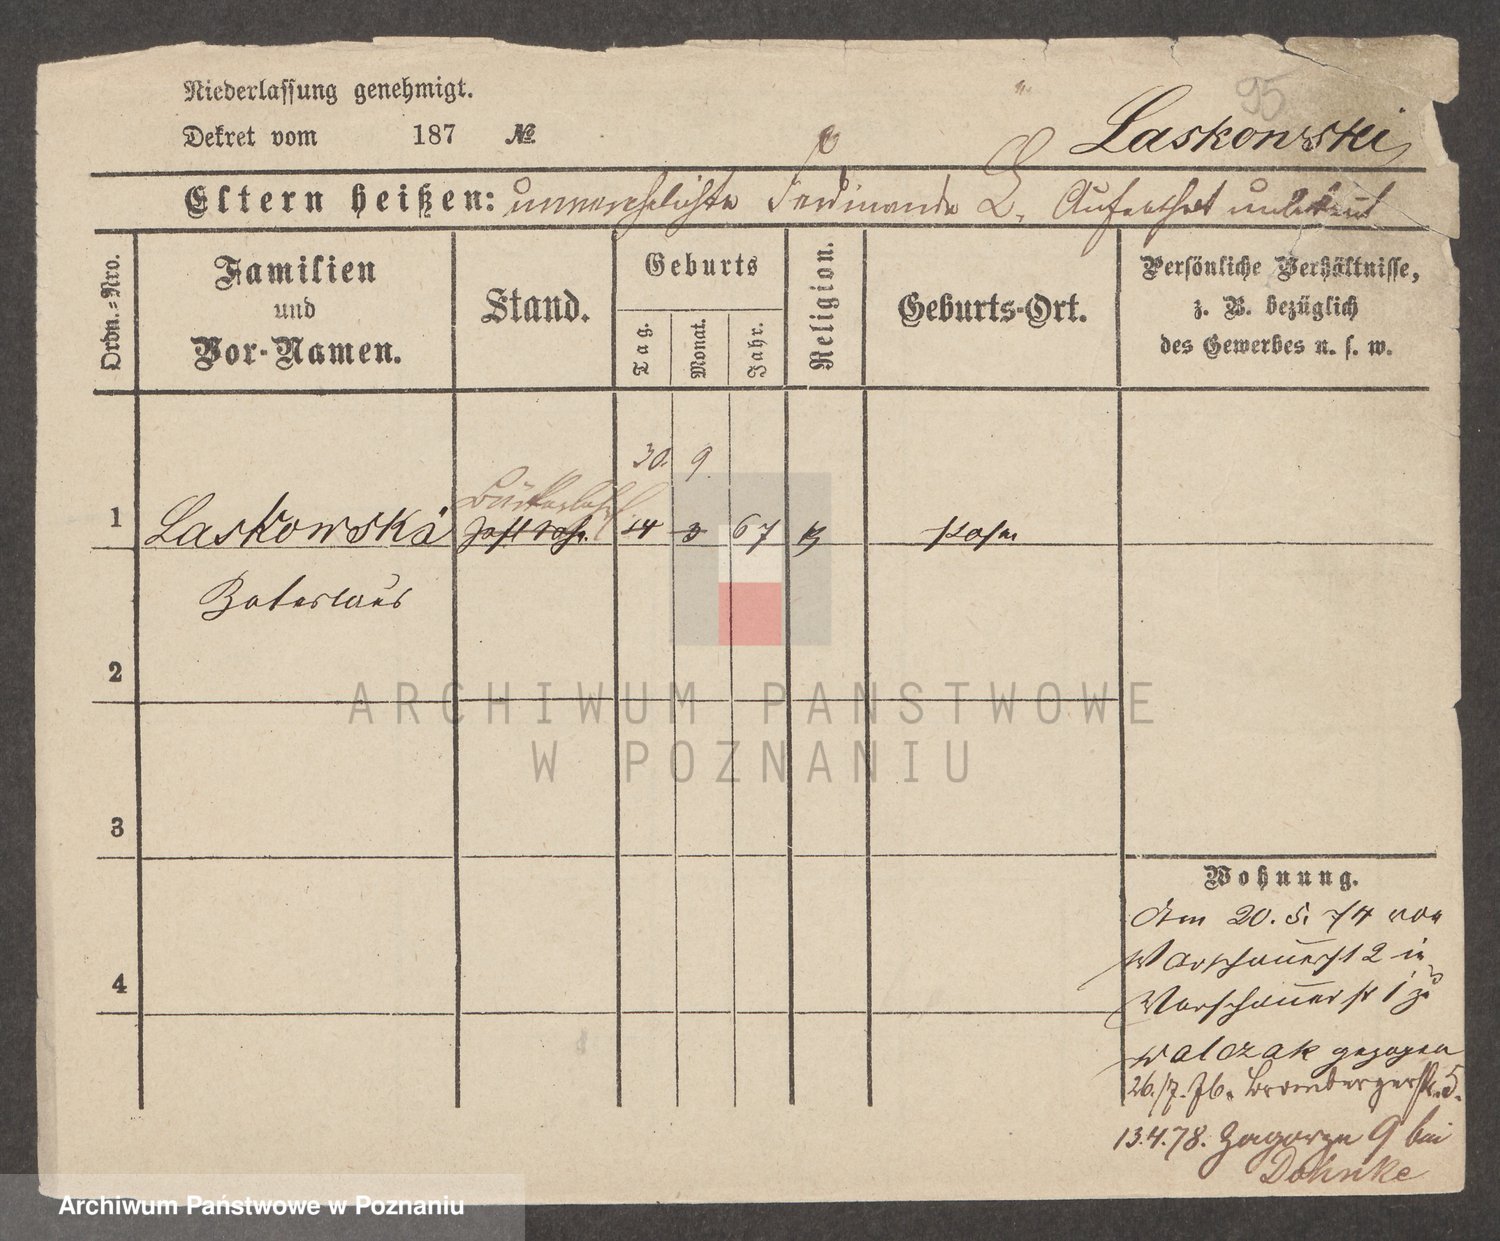 95
Niederlassung genehmigt.
Dekret vom 187 №
Laskowski
Eltern heißen: unverehelichte Ferdinande L. Aufenthalt unbekannt
Ordn.-Nro.
Familien
und
Vor-Namen.
Stand.
Geburts
Tag.
Monat.
Jahr.
Religion.
Geburts-Ort.
Persönliche Verhältnisse,
z. B. bezüglich
des Gewerbes u. s. w.
30. 9
1 Laskowski 14 3 67 K Posen
2
3
4
Wohnung.
Am 20. 5. 74 von
Warschauerst 2 in
Warschauerstr 1 zu
Walczak gezogen
26./7. 76. Brombergerstr. 5.
13.4.78. Zagorze 9 bei
Dohnke
ARCHIWUM PAŃSTWOWE
W POZNANIU
Archiwum Państwowe w Poznaniu